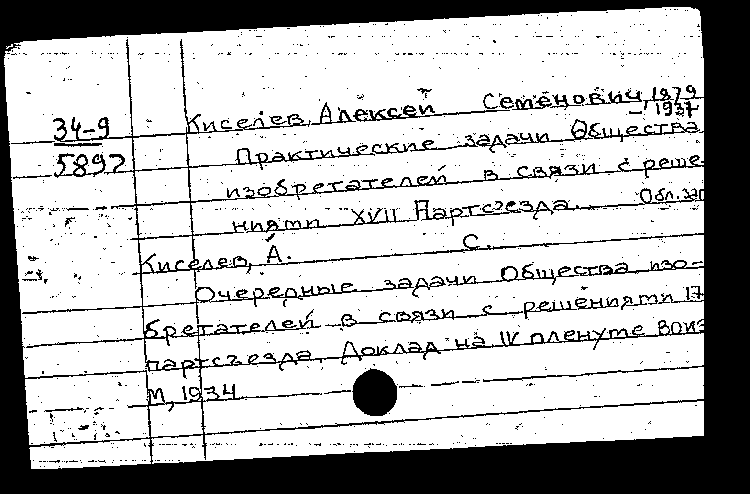 34-9
5897
Киселев, Алексей Семенович, 1879
– 1937
Практические задачи Общества
изобретателей в связи с реше-
ниями XVII Партсъезда. Обл. заг
Киселев, А. С.
Очередные задачи Общества изо-
бретателей в связи с решениями 17
партсъезда. Доклад на IV пленуме ВОИЗ
М, 1934